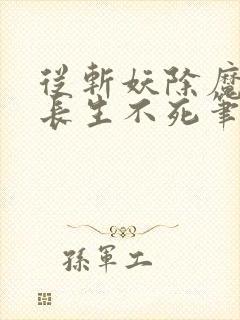 從斬妖除魔
長生不死筆
孫軍工